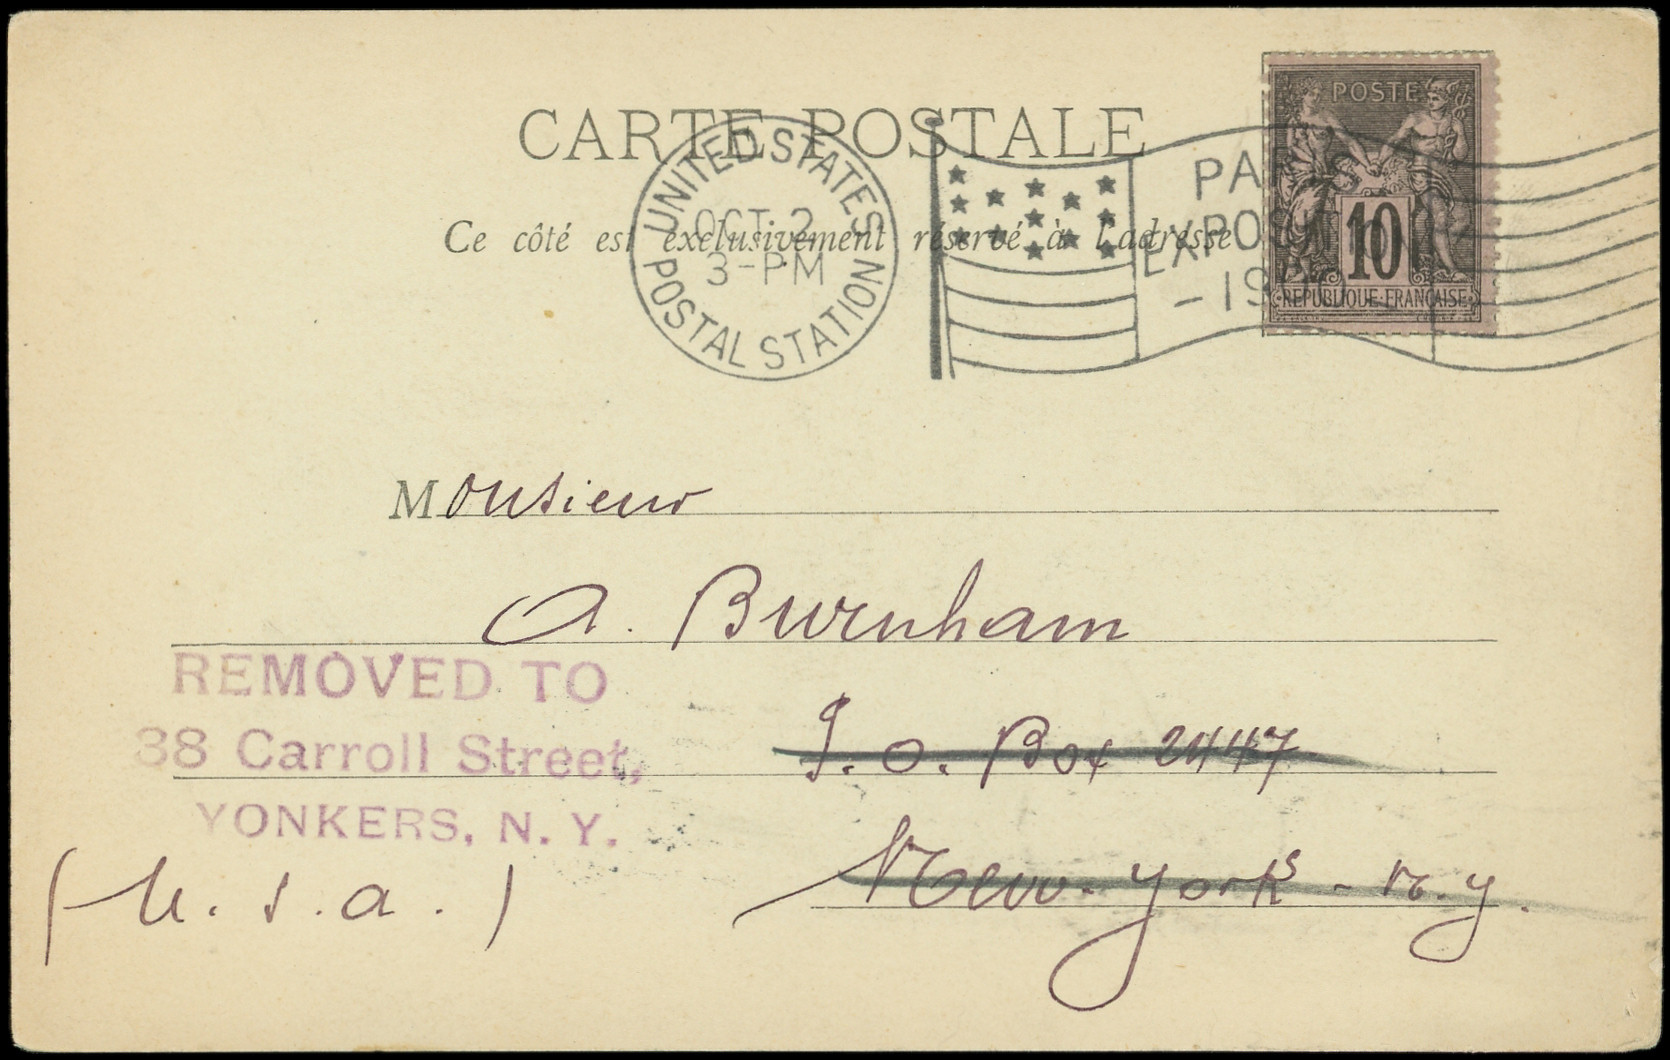 CARTE POSTALE
Ce côté est exclusivement réservé à l'adresse
UNITED STATES
OCT 2
3-PM
POSTAL STATION
PARIS
EXPOSITION
-19
POSTE
10
REPUBLIQUE FRANÇAISE
Monsieur
A. Burnham
P. O. Box 2447
New-York - N. Y.
REMOVED TO
38 Carroll Street,
YONKERS, N. Y.
(U. S. A.)